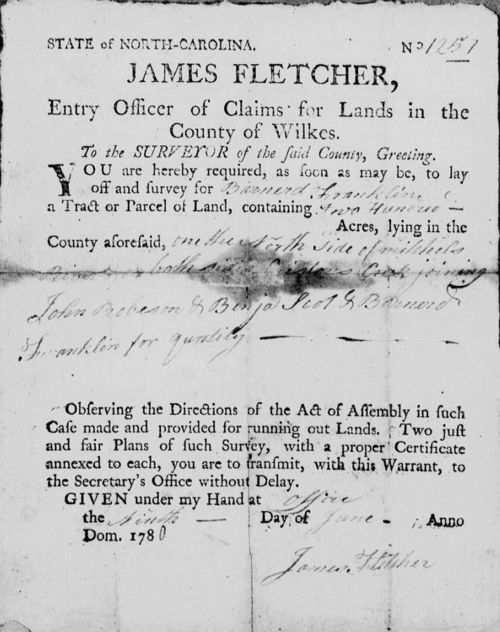 STATE of NORTH-CAROLINA. No 1257
JAMES FLETCHER,
Entry Officer of Claims for Lands in the
County of Wilkes.
To the SURVEYOR of the said County, Greeting.
YOU are hereby required, as soon as may be, to lay
off and survey for Barnerd Franklin
a Tract or Parcel of Land, containing Two Hundred —
Acres, lying in the
County aforesaid, one the North Side of mitchels
River both sides Creek joining
John Robeson & Benja Scot & Barnerd
Franklin for quntity —
Observing the Directions of the Act of Assembly in such
Case made and provided for running out Lands. Two just
and fair Plans of such Survey, with a proper Certificate
annexed to each, you are to transmit, with this Warrant, to
the Secretary's Office without Delay.
GIVEN under my Hand at office
the Ninth — Day of June - Anno
Dom. 178
James Fletcher